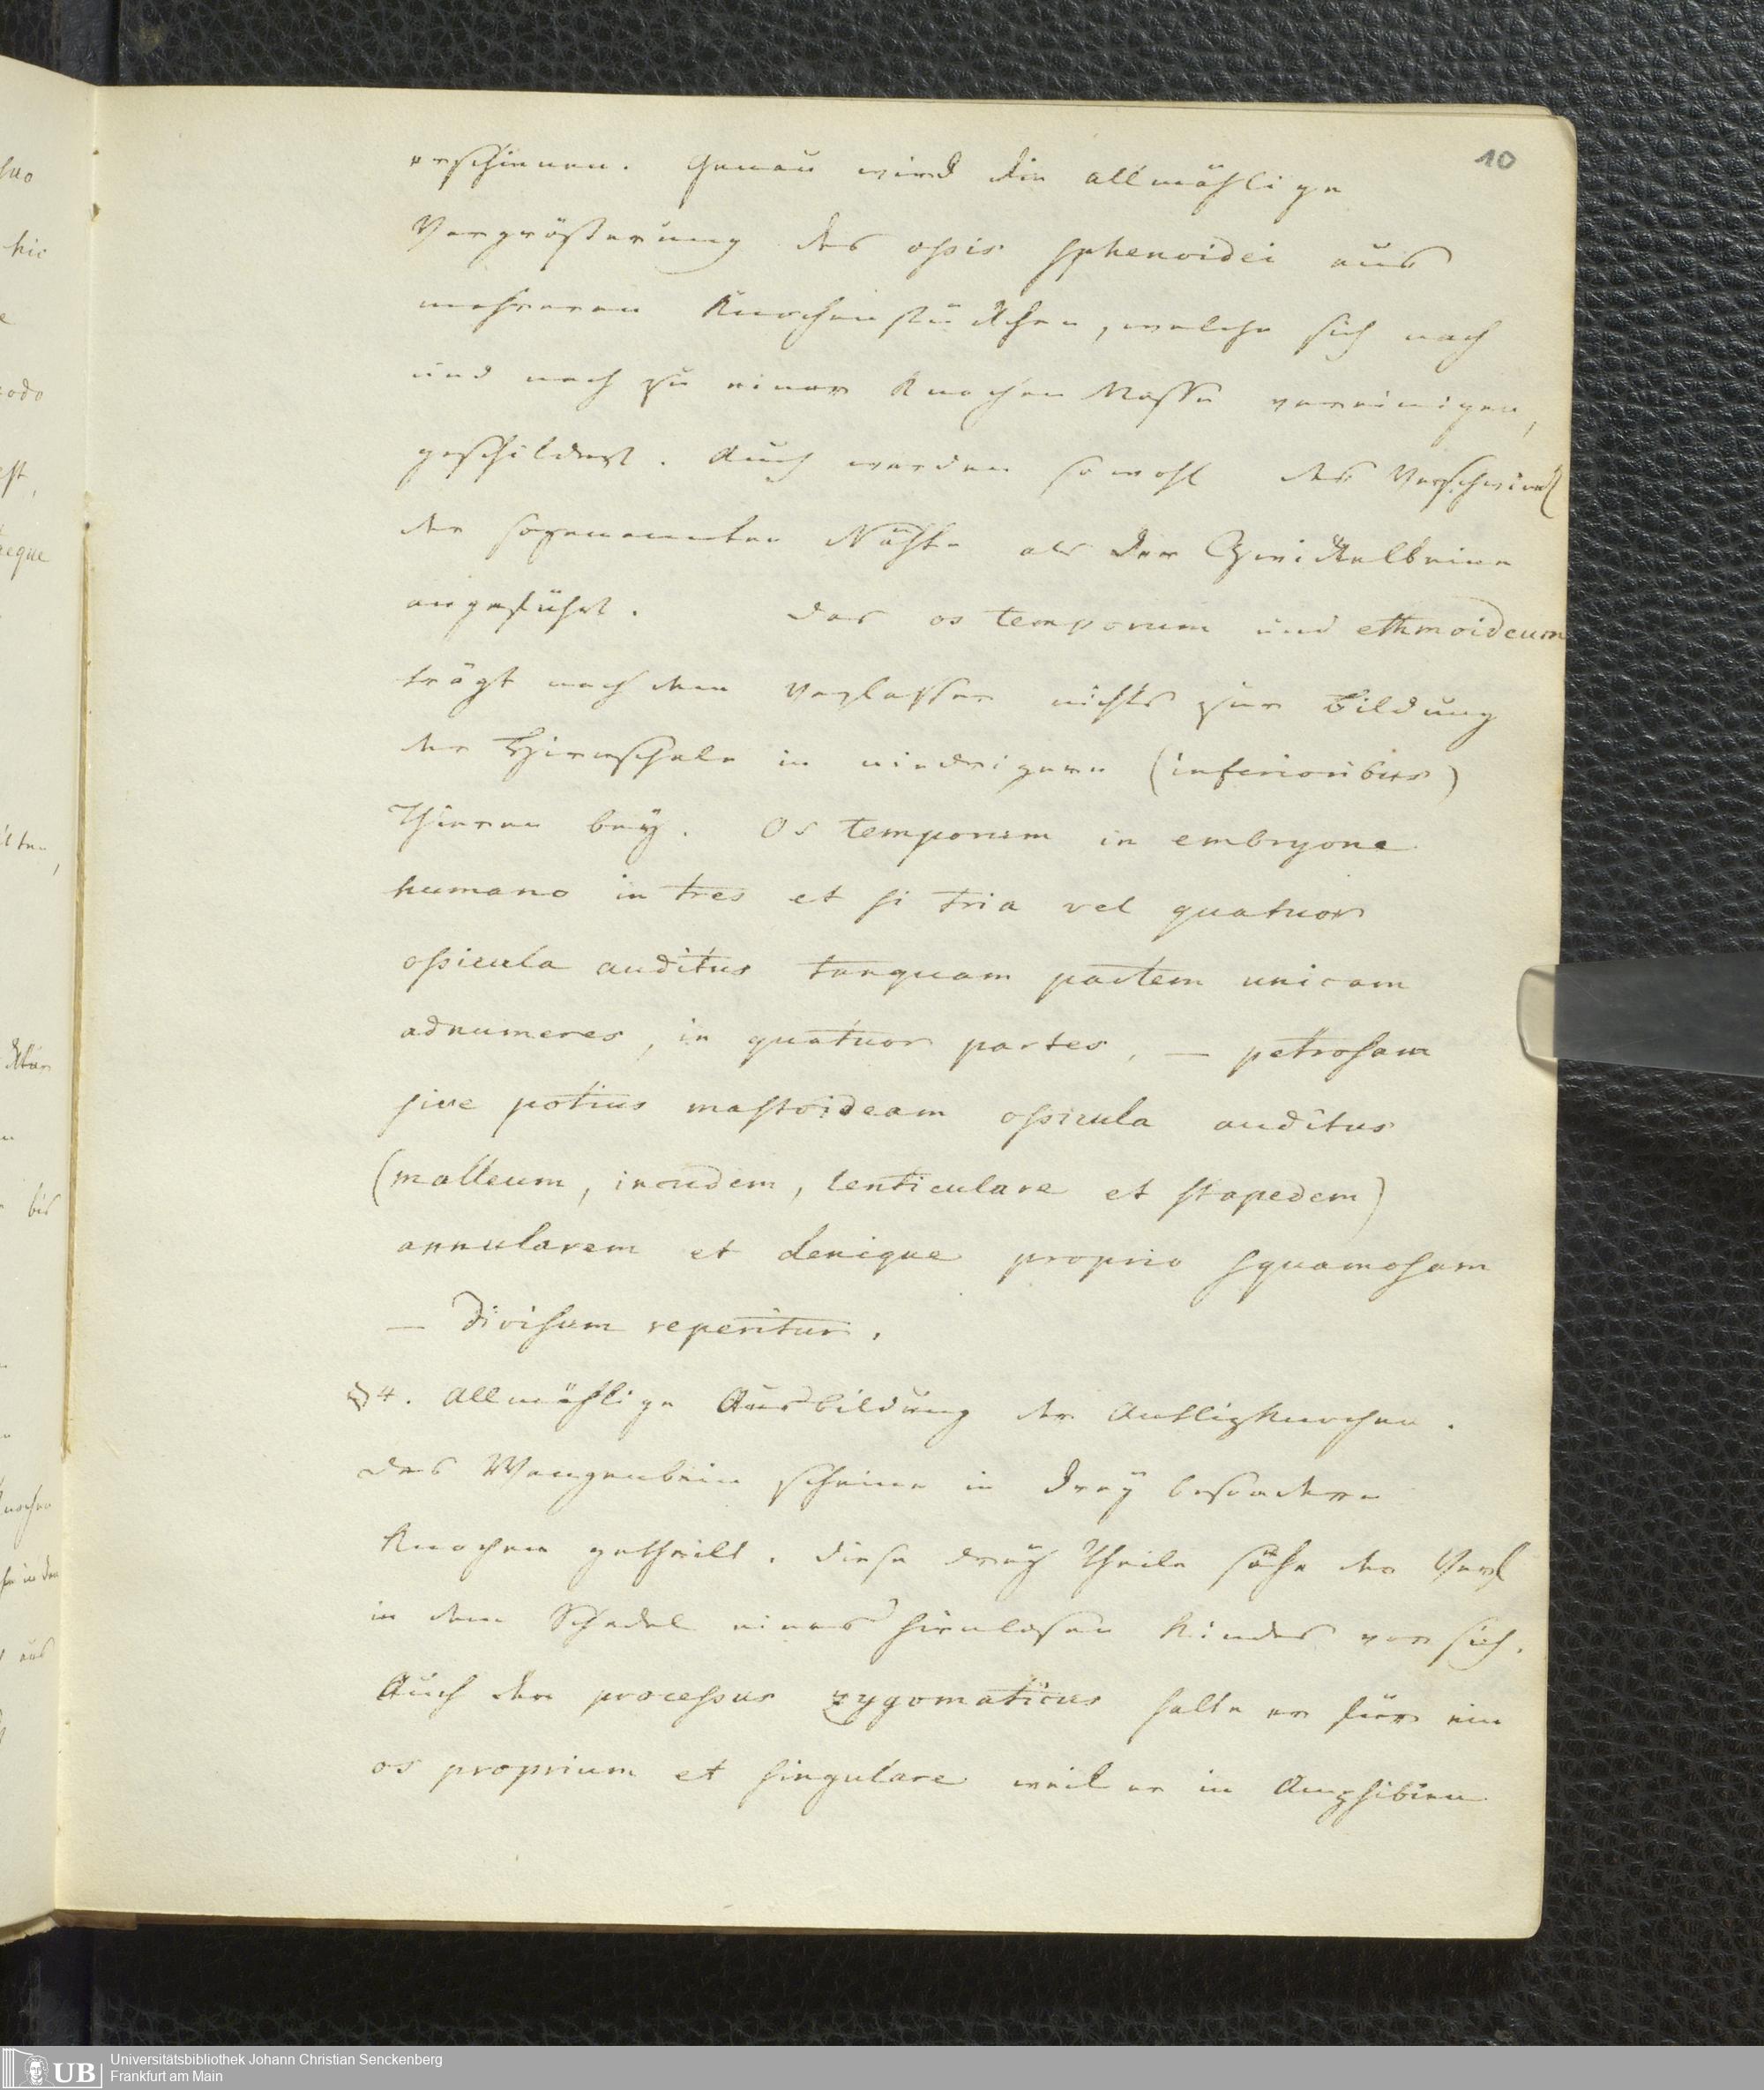 10
erschienen. Genau wird die allmählige
Vergrößerung des ossis sphenoidei aus
mehreren Knochenstückchen, welche sich nach
und nach zu einer Knochen Masse vereinigen,
geschildert. Auch werden sowohl das Verschwind
der sogenannten Nähte als der Zwickelbeine
angeführt. Das os temporum und ethmoideum
trägt nach dem Verfasser nichts zur Bildung
der Hirnschale in niedrigern (inferioribus)
Thieren bey. Os temporum in embryone
humano in tres et si tria vel quatuor
ossicula auditus tanquam partem unicam
adnumeres, in quatuor partes, — petrosam
sive potius mastoideam ossicula auditus
(malleum, incudem, lenticulare et stapedem)
annularem et denique proprio squamosam
— divisum reperitur.
§ 4. Allmählige Ausbildung der Antlizknochen.
Das Wangenbein scheine in drey besondere
Knochen getheilt. Diese drey Theile sähe der Verf
in dem Schedel eines hirnlosen Kindes vor sich.
Auch den processus zygomaticus halte er für ein
os proprium et singulare weil er in Amphibien
suo
hic
e
odo
est,
aeque
bis
aus
UB
Universitätsbibliothek Johann Christian Senckenberg
Frankfurt am Main